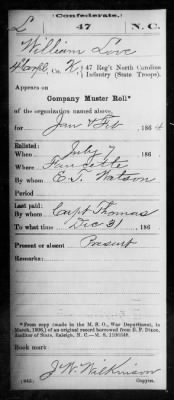 (Confederate.)
L 47 N.C.
William Love
4" Corpl, Co. K, 47 Reg't North Carolina
Infantry (State Troops).
Appears on
Company Muster Roll*
of the organization named above,
for Jan & Feb, 1864
Enlisted:
When July 7, 186
Where
By whom E. T. Watson
Period
Last paid:
By whom Capt Thomas
To what time Dec 31, 186
Present or absent Present
Remarks:
*From copy (made in the M. S. O., War Department, in
March, 1908,) of an original record borrowed from B. F. Dixon,
Auditor of State, Raleigh, N. C.
Book mark:
J. W. Wilkinson
Copyist.